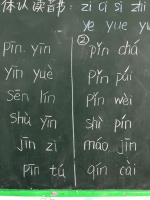 体认读音节: zi ci si zhi
ye yue yu
pīn yīn
yīn yuè
sēn lín
shù yīn
jīn zi
pīn tú
②
pǐn chá
pǐn pái
pǐn wèi
shì pǐn
máo jīn
qín cài